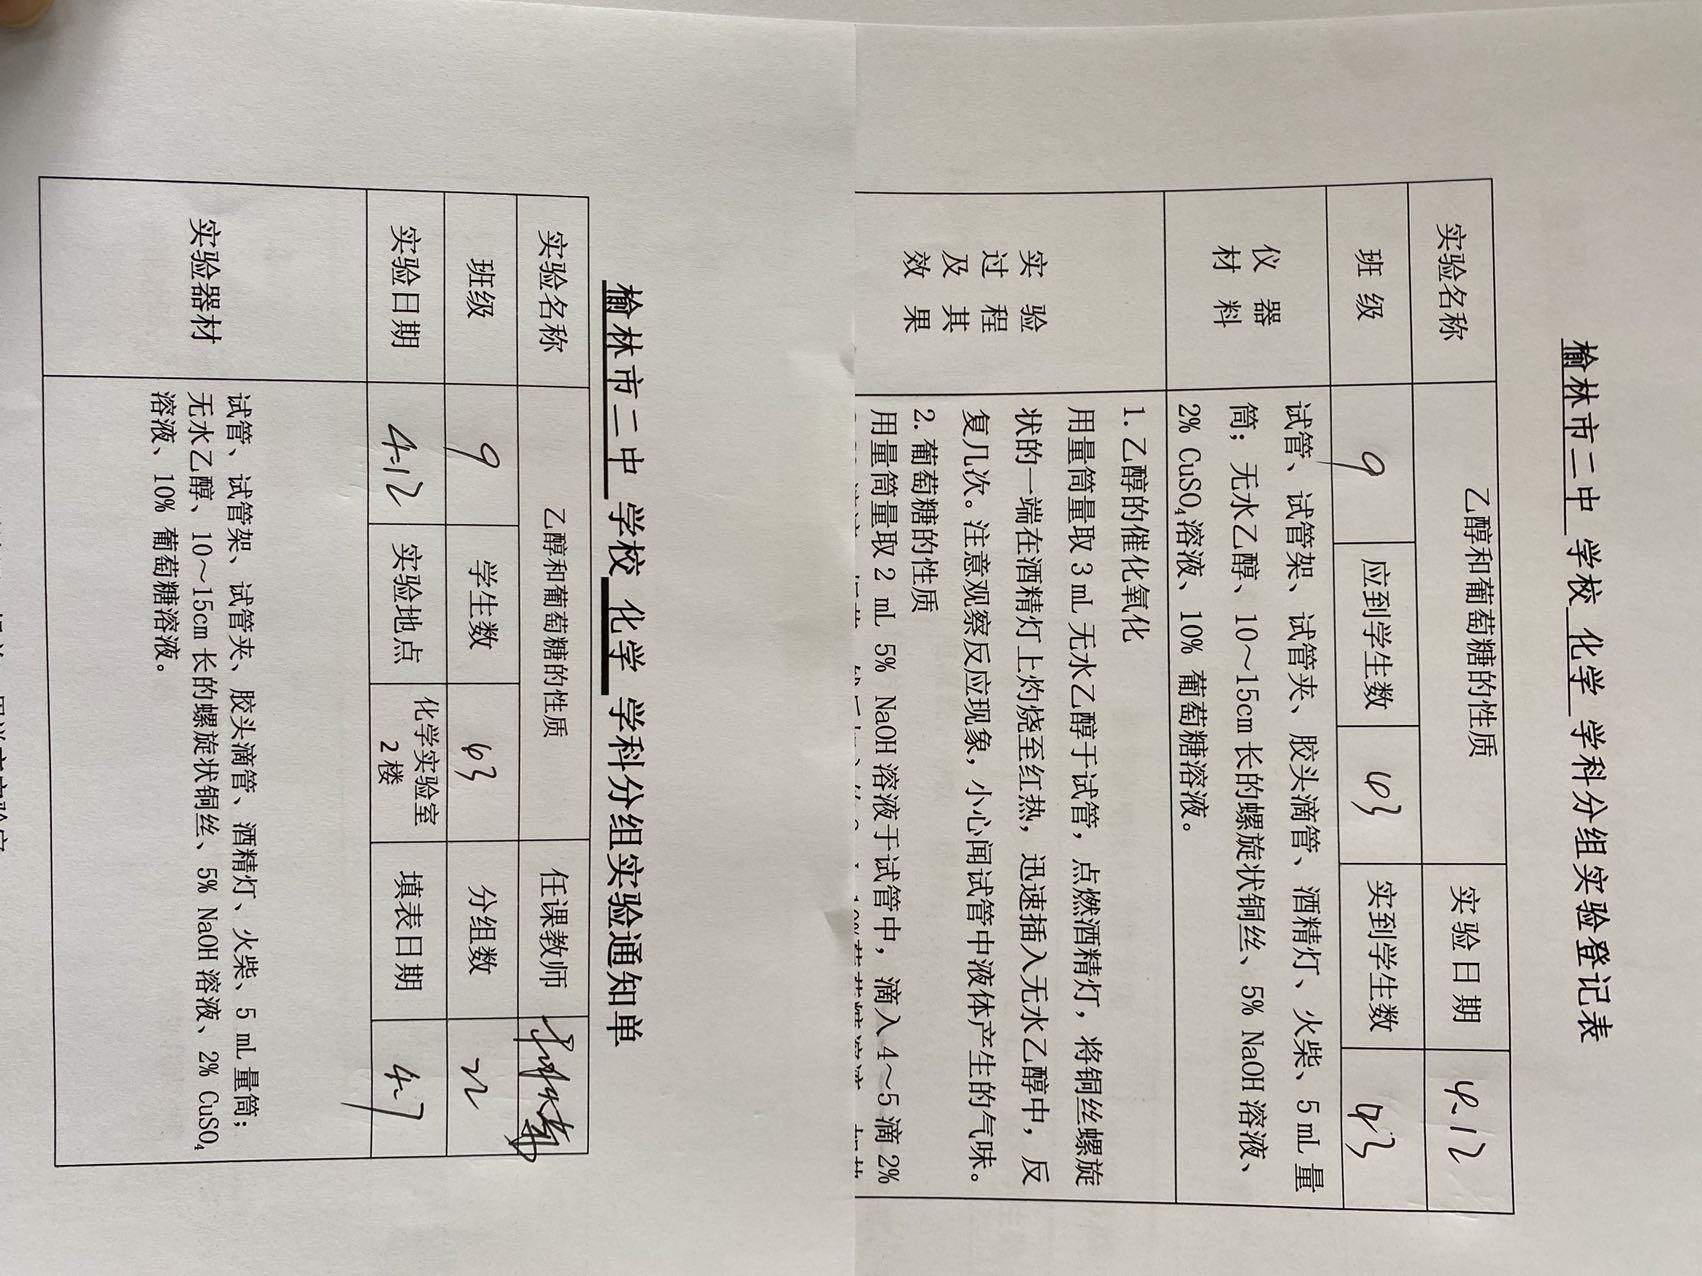 榆林市二中 学校 化学 学科分组实验登记表
实验名称 乙醇和葡萄糖的性质 实验日期 4.12
班级 9 应到学生数 43 实到学生数 43
仪器
材料
试管、试管架、试管夹、胶头滴管、酒精灯、火柴、5 mL 量
筒；无水乙醇、10～15cm 长的螺旋状铜丝、5% NaOH 溶液、
2% CuSO₄溶液、10% 葡萄糖溶液。
实验
过程
及其
效果
1. 乙醇的催化氧化
用量筒量取 3 mL 无水乙醇于试管，点燃酒精灯，将铜丝螺旋
状的一端在酒精灯上灼烧至红热，迅速插入无水乙醇中，反
复几次。注意观察反应现象，小心闻试管中液体产生的气味。
2. 葡萄糖的性质
用量筒量取 2 mL 5% NaOH 溶液于试管中，滴入 4～5 滴 2%
榆林市二中 学校 化学 学科分组实验通知单
实验名称 乙醇和葡萄糖的性质 任课教师
班级 9 学生数 43 分组数 22
实验日期 4.12 实验地点 化学实验室
2楼 填表日期 4.7
实验器材
试管、试管架、试管夹、胶头滴管、酒精灯、火柴、5 mL 量筒；
无水乙醇、10～15cm 长的螺旋状铜丝、5% NaOH 溶液、2% CuSO₄
溶液、10% 葡萄糖溶液。